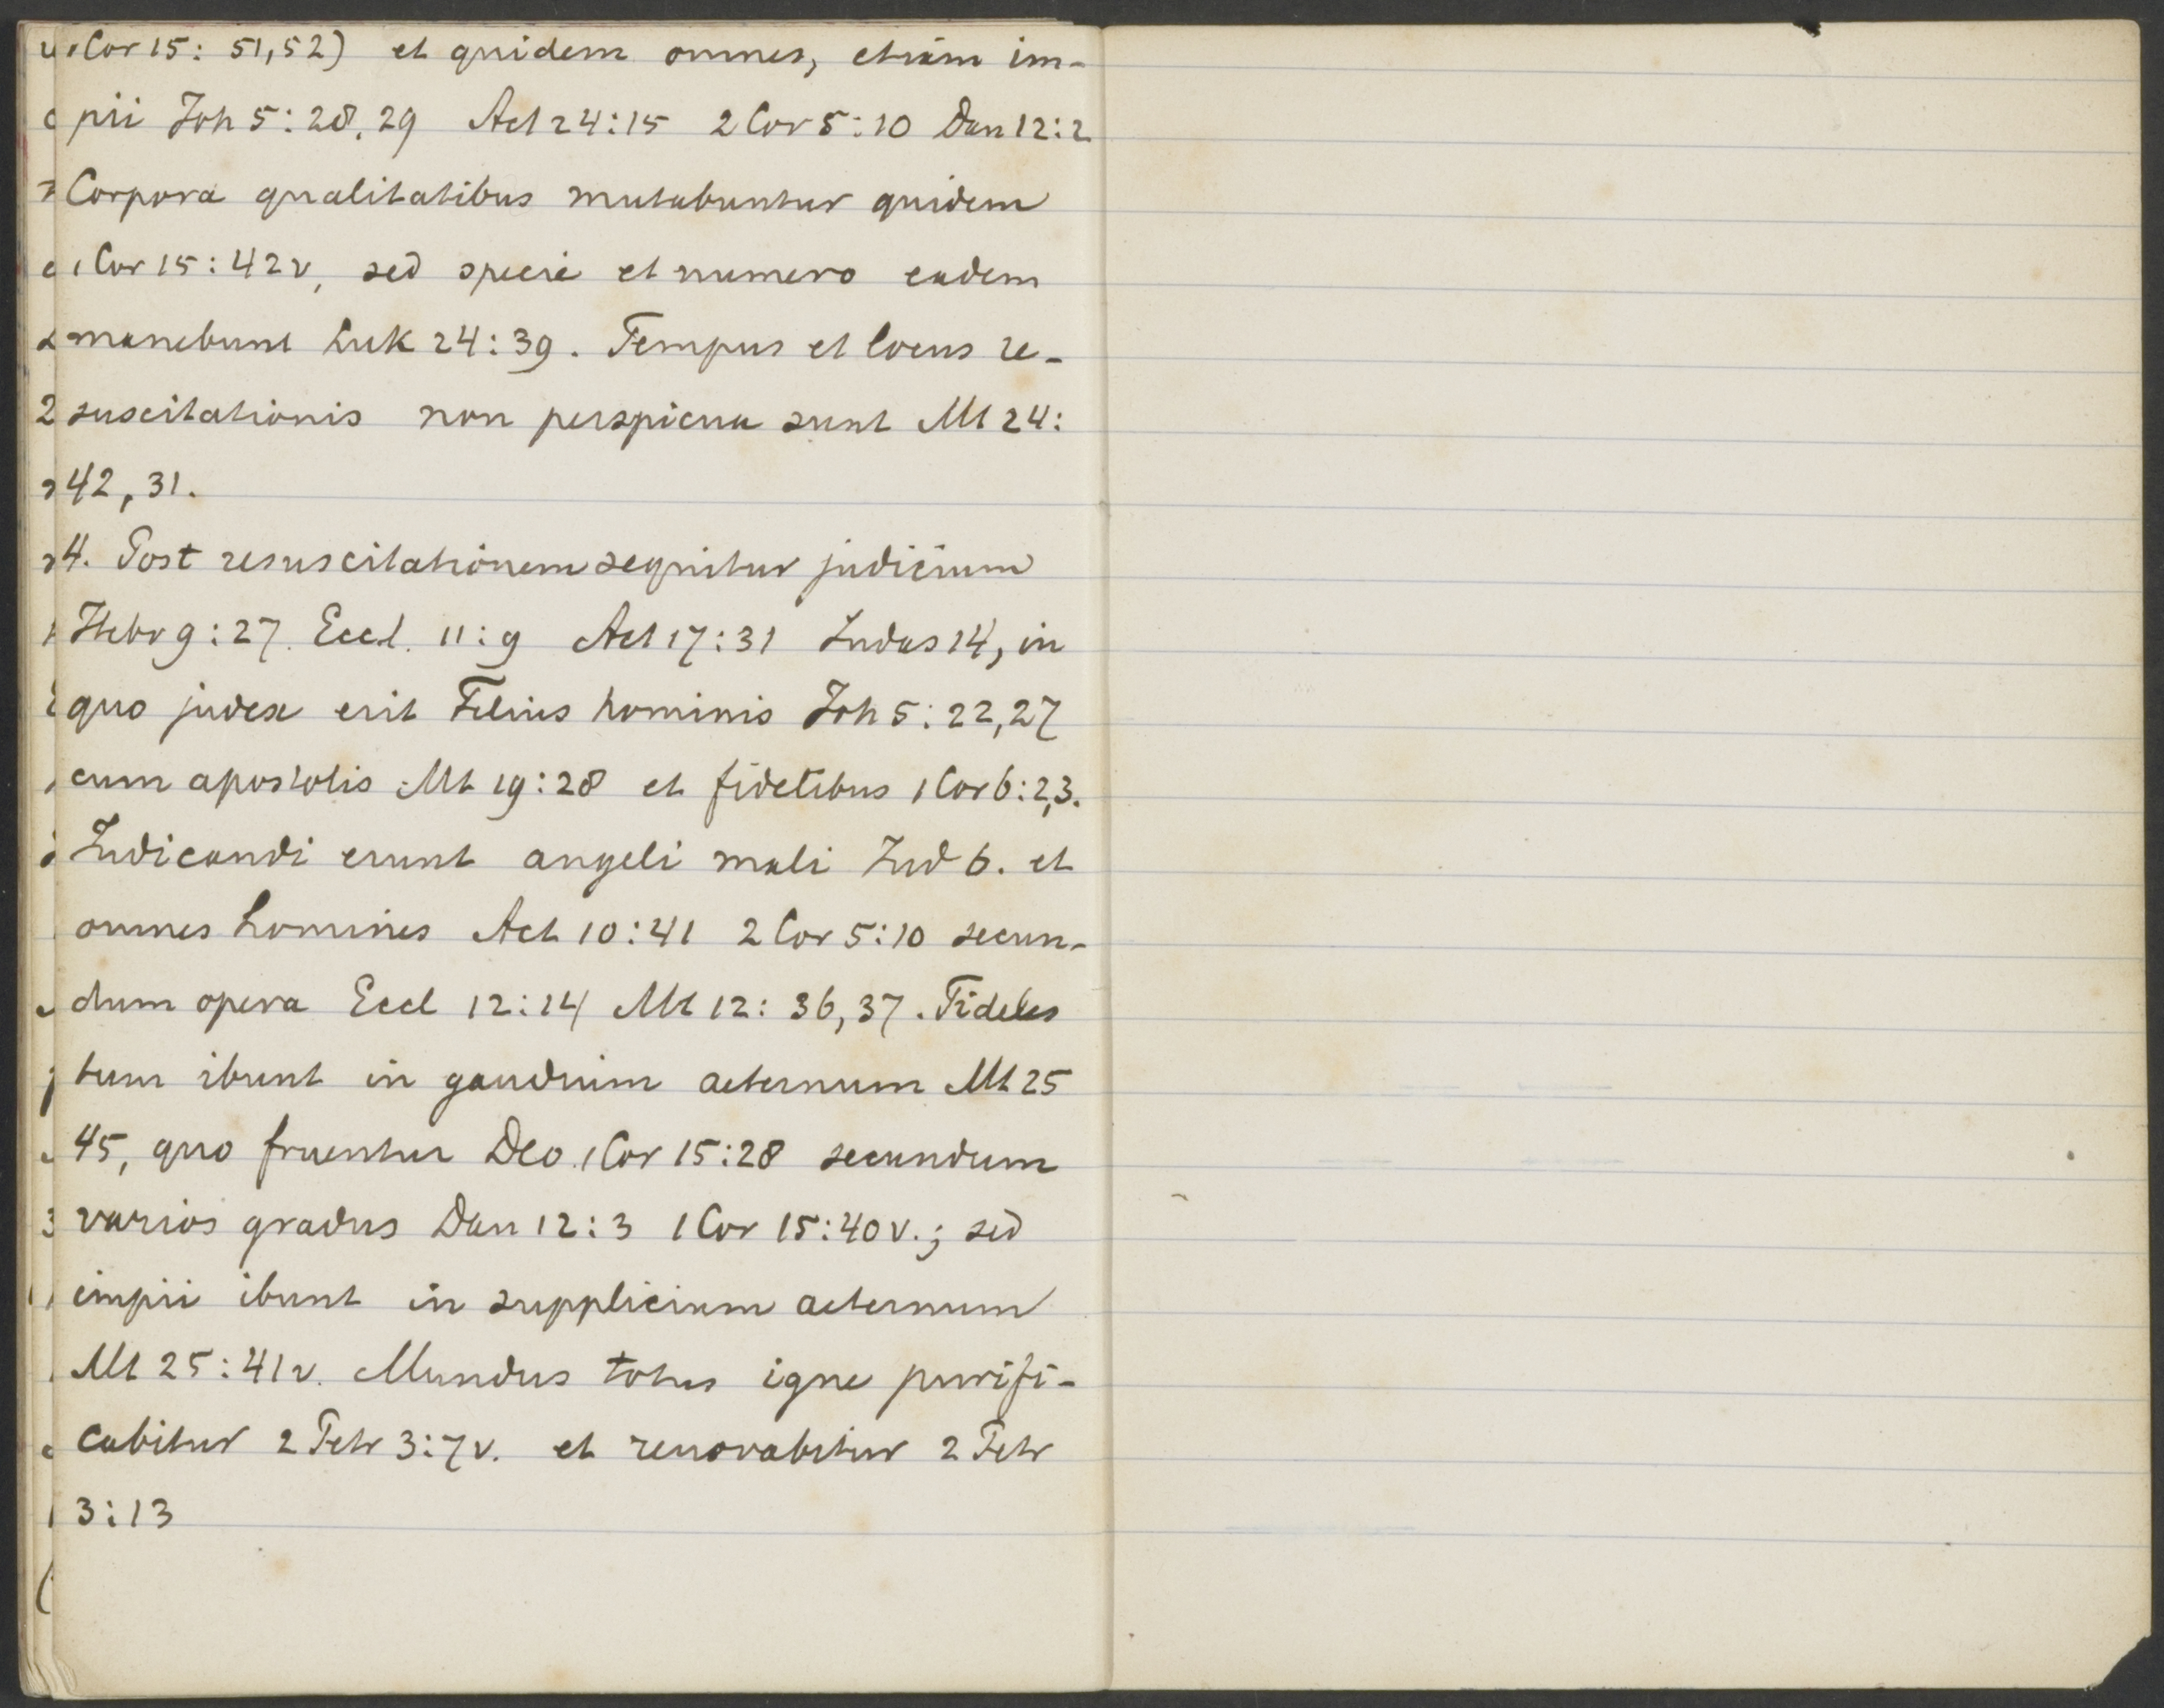 1 Cor 15: 51,52) et quidem omnes, etiam im-
pii Joh 5: 28, 29 Act 24:15 2 Cor 5:10 Dan 12:2
Corpora qualitatibus mutabuntur quidem
1 Cor 15: 42v, sed specie et numero eadem
manebunt Luk 24:39. Tempus et locus re-
suscitationis non perspicua sunt Mt 24:
42, 31.
4. Post resuscitationem sequitur judicium
Hebr 9:27. Eccl. 11:9 Act 17:31 Judas 14, in
quo judex erit Filius hominis Joh 5: 22,27
cum apostolis Mt 19:28 et fidelibus 1 Cor 6:2,3.
Judicandi erunt angeli mali Jud 6. et
omnes homines Act 10:41 2 Cor 5:10 secun-
dum opera Eccl 12:14 Mt 12: 36, 37. Fideles
tum ibunt in gaudium aeternum Mt 25
45, quo fruentur Deo 1 Cor 15:28 secundum
varios gradus Dan 12:3 1 Cor 15:40v.; sed
impii ibunt in supplicium aeternum
Mt 25:41v. Mundus totus igne purifi-
cabitur 2 Petr 3:7v. et renovabitur 2 Petr
3:13